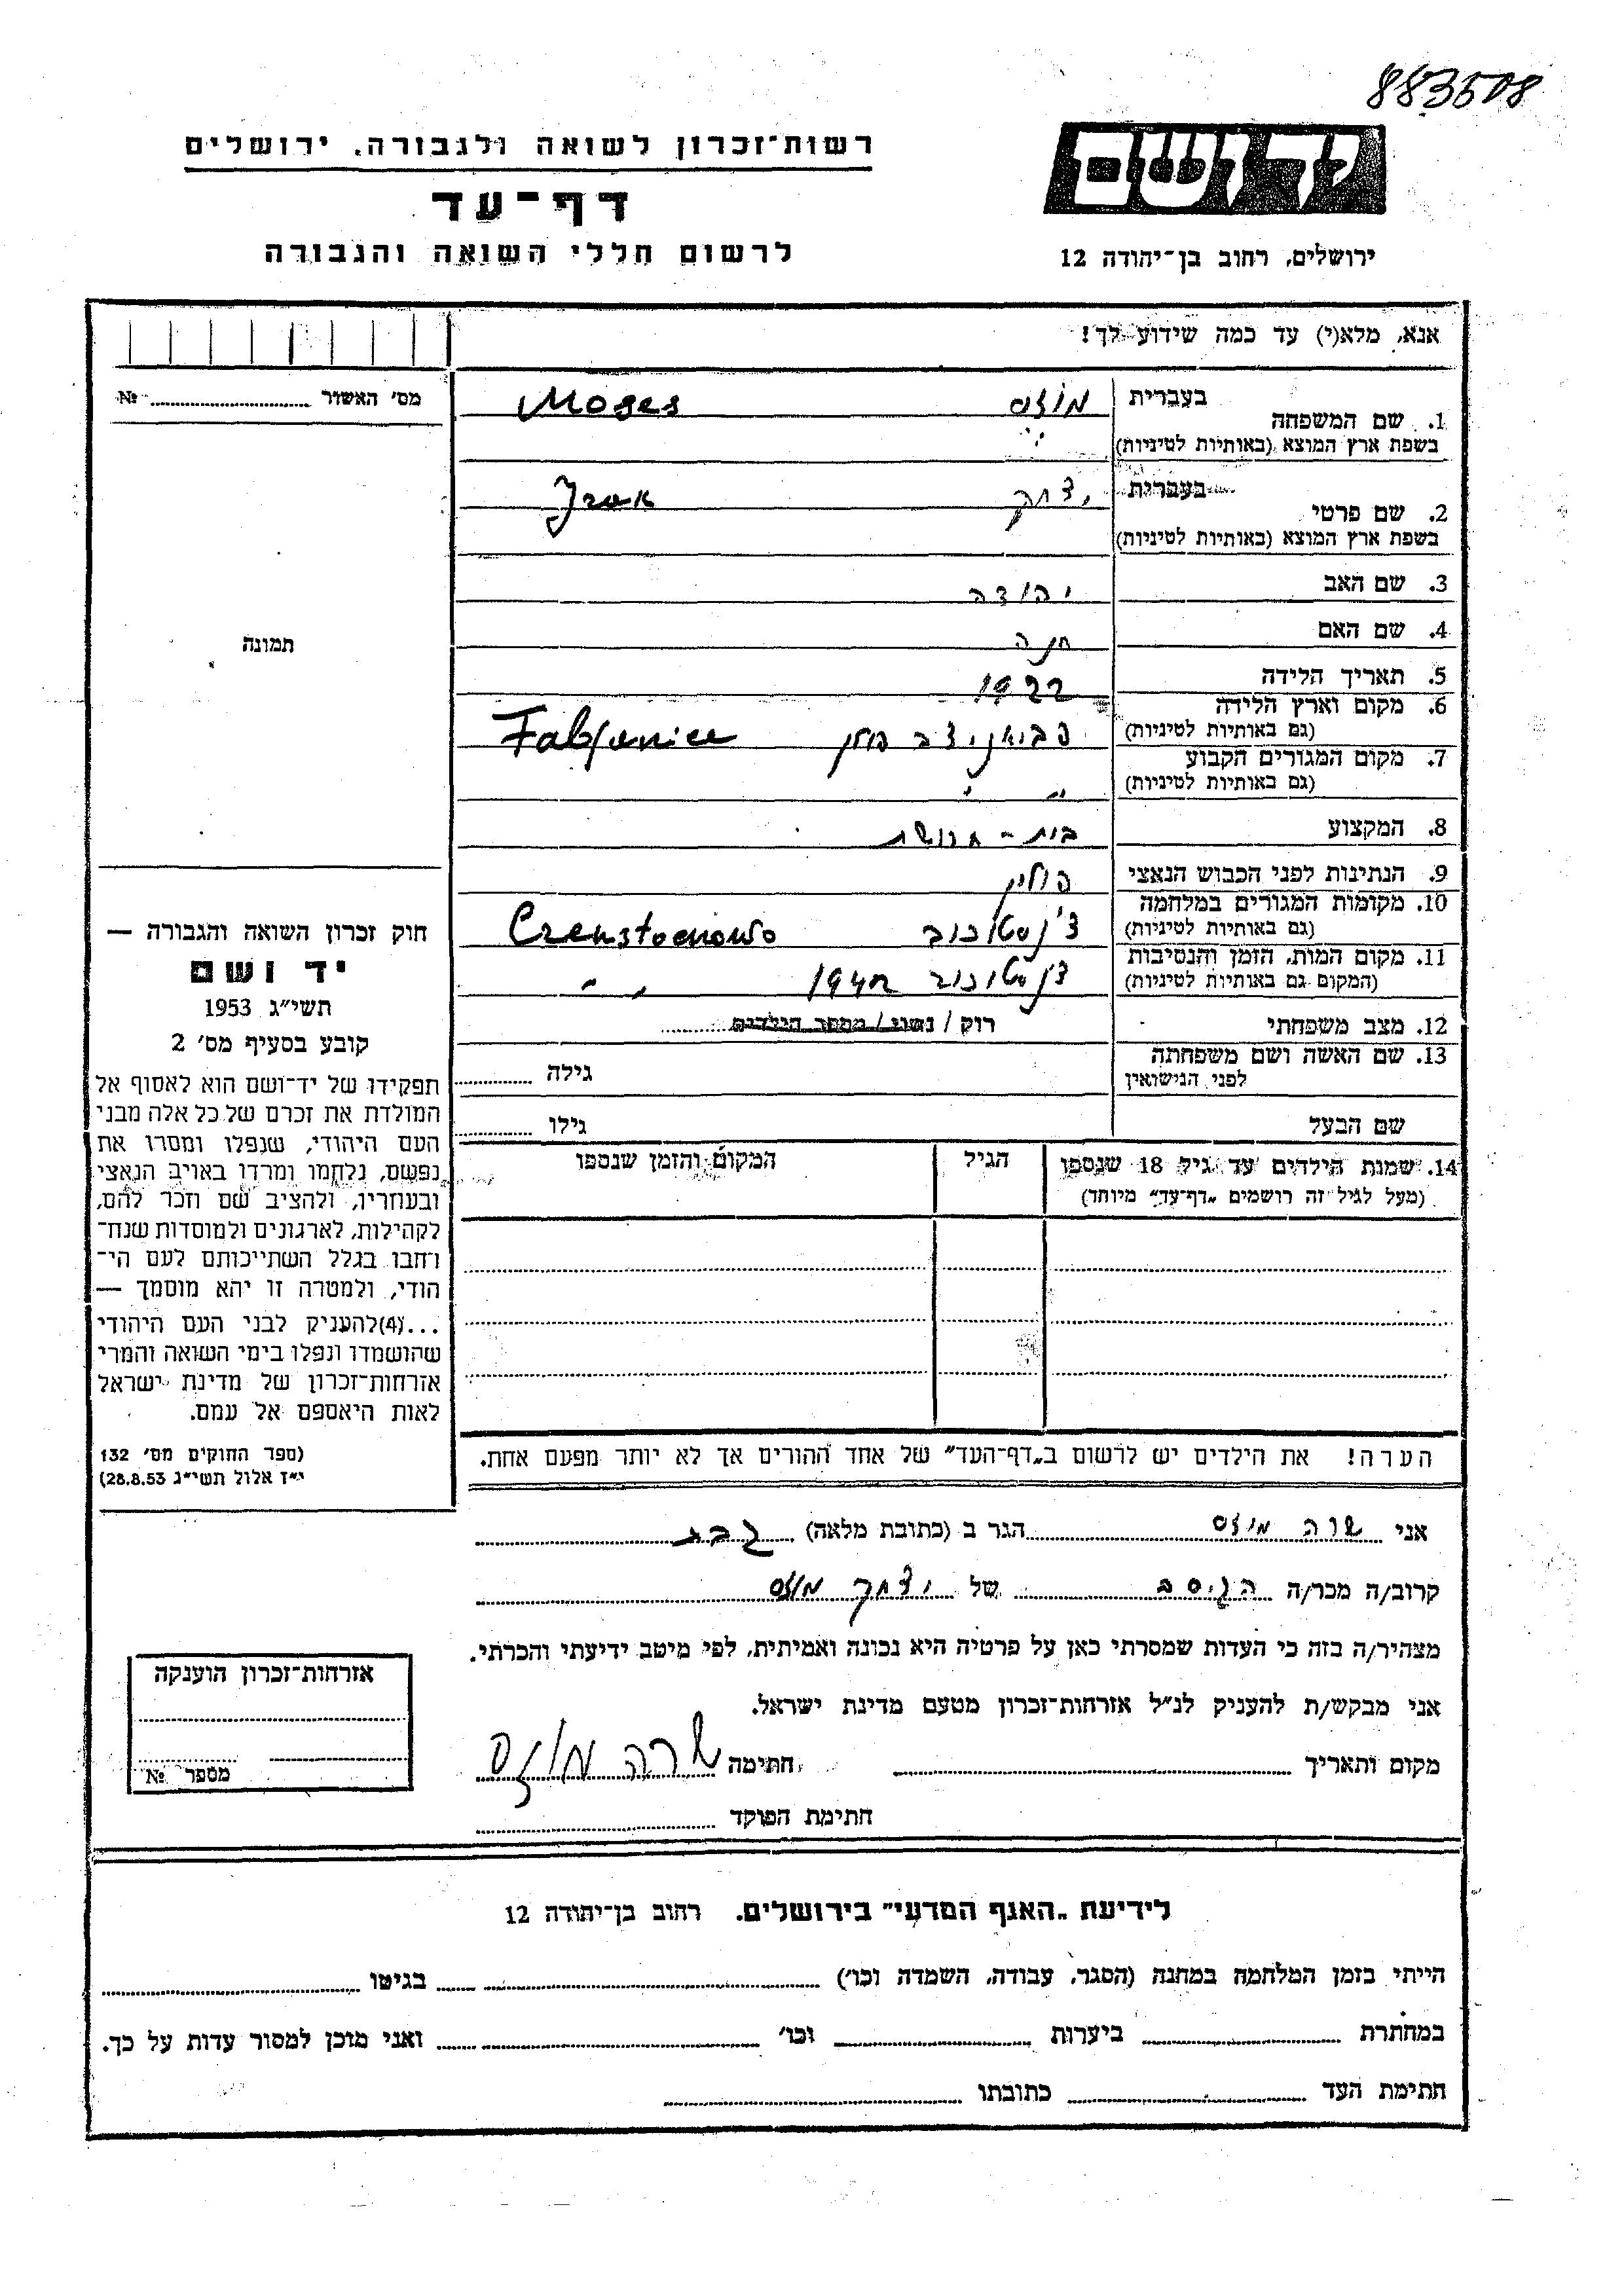 883508
רשות־זכרון לשואה ולגבורה, ירושלים
דף־עד
לרשום חללי השואה והגבורה
ידושם
ירושלים, רחוב בן־יהודה 12
אנא, מלא(י) עד כמה שידוע לך!
מס' האשור № 
1. שם המשפחה בעברית מוזס Moses
בשפת ארץ המוצא (באותיות לטיניות)
2. שם פרטי בעברית יצחק
בשפת ארץ המוצא (באותיות לטיניות)
3. שם האב יהודה
4. שם האם חנה
5. תאריך הלידה 1922
6. מקום וארץ הלידה
(גם באותיות לטיניות) פביאניצב פולין
7. מקום המגורים הקבוע
(גם באותיות לטיניות) " "
8. המקצוע בית-חרושת
9. הנתינות לפני הכבוש הנאצי פולין
10. מקומות המגורים במלחמה
(גם באותיות לטיניות) צ'נסטוכוב
11. מקום המות, הזמן והנסיבות
(המקום גם באותיות לטיניות) צ'נסטוכוב 1942 " "
12. מצב משפחתי רוק / נשוי / מספר הילדים
13. שם האשה ושם משפחתה
לפני הנישואין גילה
שם הבעל גילו
14. שמות הילדים עד גיל 18 שנספו הגיל המקום והזמן שנספו
(מעל לגיל זה רושמים „דף־עד" מיוחד)
הערה! את הילדים יש לרשום ב„דף־העד" של אחד ההורים אך לא יותר מפעם אחת.
תמונה
חוק זכרון השואה והגבורה —
יד ושם
תשי"ג 1953
קובע בסעיף מס' 2
תפקידו של יד־ושם הוא לאסוף אל
המולדת את זכרם של כל אלה מבני
העם היהודי, שנפלו ומסרו את
נפשם, נלחמו ומרדו באויב הנאצי
ובעוזריו, ולהציב שם וזכר להם,
לקהילות, לארגונים ולמוסדות שנח־
רחבו בגלל השתייכותם לעם הי־
הודי, ולמטרה זו יהא מוסמך —
...(4)להעניק לבני העם היהודי
שהושמדו ונפלו בימי השואה והמרי
אזרחות־זכרון של מדינת ישראל
לאות היאספם אל עמם.
(ספר החוקים מס' 132
י"ז אלול תשי"ג 28.8.53)
אני שרה מוזס הגר ב (כתובת מלאה)
קרוב/ה מכר/ה של יצחק מוזס
מצהיר/ה בזה כי העדות שמסרתי כאן על פרטיה היא נכונה ואמיתית, לפי מיטב ידיעתי והכרתי.
אני מבקש/ת להעניק לנ"ל אזרחות־זכרון מטעם מדינת ישראל.
מקום ותאריך חתימה שרה מוזס
חתימת הפוקד
אזרחות־זכרון הוענקה
מספר №
לידיעת „האגף המדעי" בירושלים. רחוב בן־יהודה 12
הייתי בזמן המלחמה במחנה (הסגר, עבודה, השמדה וכו') בגיטו
במחתרת ביערות וכו' ואני מוכן למסור עדות על כך.
חתימת העד כתובתו